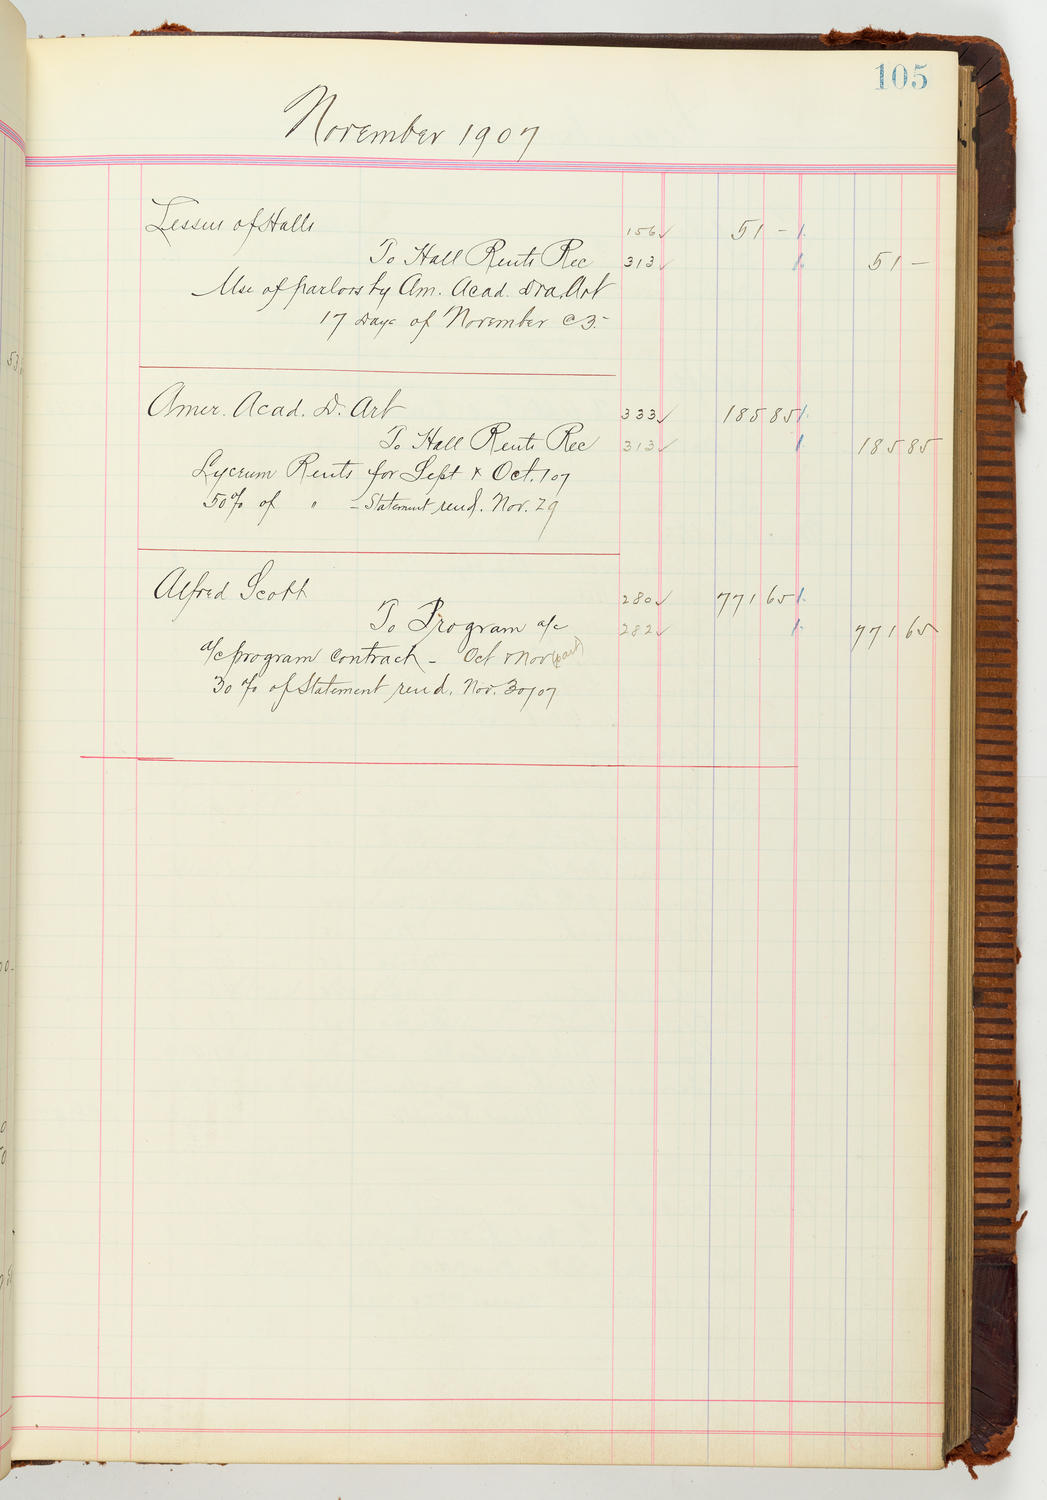 105
November 1907
Lessees of Halls 156 ✓ 51 -
To Hall Rents Rec 313 ✓ 51 -
Use of parlors by Am. Acad. Dra. Art
17 Days of November @ 3.-
Amer. Acad. D. Art 333 ✓ 185 85
To Hall Rents Rec 313 ✓ 185 85
Lyceum Rents for Sept & Oct. / 07
50% of " - Statement rend. Nov. 29
Alfred Scott 280 ✓ 771 65
To Program a/c 282 ✓ 771 65
a/c program contract - Oct & Nov (part)
30% of Statement rend. Nov. 30/07